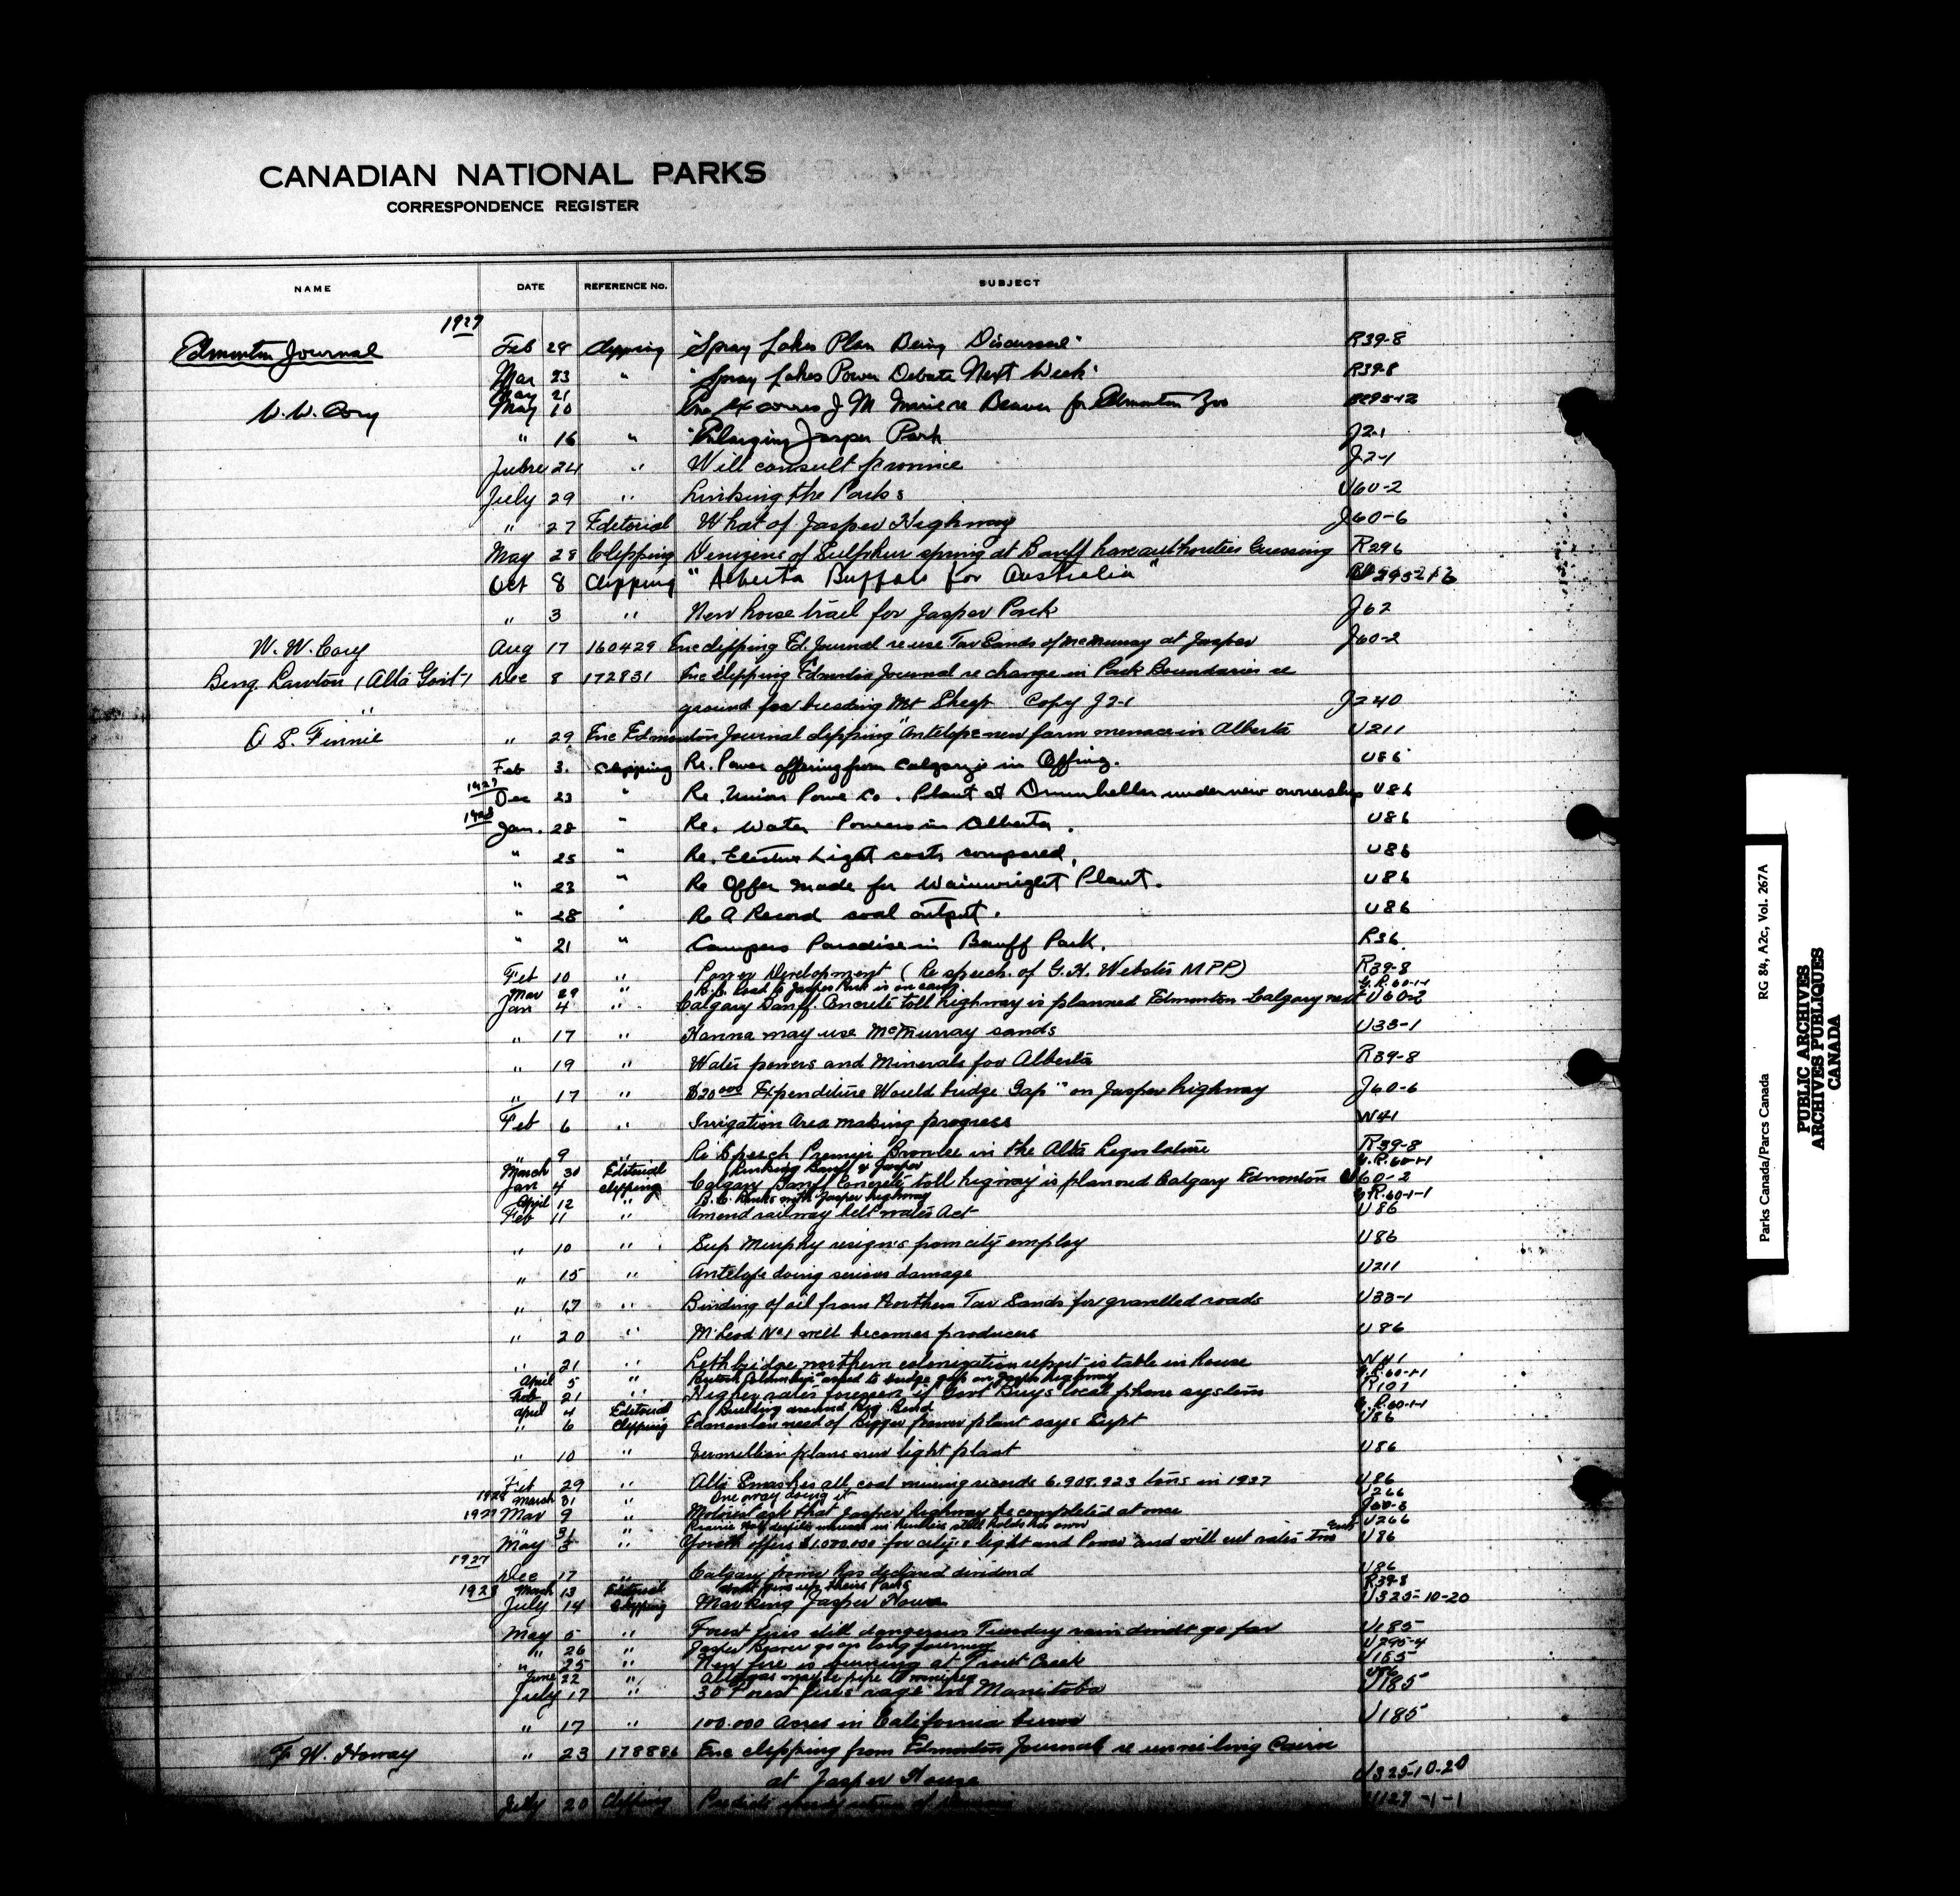 CANADIAN NATIONAL PARKS
CORRESPONDENCE REGISTER
NAME DATE REFERENCE No. SUBJECT
1927
Edmonton Journal Feb 28 Clipping "Spray Lakes Plan Being Discussed" R39-8
Mar 23 " "Spray Lakes Power Debate Next Week" R39-8
May 21
W. W. Cory May 10 Enc corres J M re Beaver for Edmonton Zoo
" 16 " "Enlarging Jasper Park J2-1
24 " Will consult province J2-1
July 29 " Linking the Parks U60-2
" 27 Editorial What of Jasper Highway J60-6
May 28 Clipping Denizens of Sulphur spring at Banff have authorities Guessing R296
Oct 8 Clipping "Alberta Buffalo for Australia"
" 3 " New horse trail for Jasper Park J62
W. W. Cory Aug 17 160429 Enc clipping Ed. Journal re use Tar Sands of McMurray at Jasper J60-2
Benj. Lawton (Alta Govt) Dec 8 172831 Enc clipping Edmonton Journal re change in Park Boundaries re
" ground for breeding Mt Sheep Copy J2-1 J240
O S. Finnie " 29 Enc Edmonton Journal clipping "Antelope new farm menace in Alberta U211
Feb 3. Clipping Re. Power offering from Calgary is in Offing. U86
1927 Dec 23 " Re. Union Power Co. Plant at Drumheller under new ownership U86
1928 Jan. 28 " Re. Water Powers in Alberta. U86
" 25 " Re. Electric Light costs compared. U86
" 23 " Re Offer made for Wainwright Plant. U86
" 28 " Re A Record coal output. U86
" 21 " Campers Paradise in Banff Park. R36
Feb 10 " Power Development (Re speech of G. H. Webster MPP) R39-8
Mar 29 " B.C. Road to Jasper Park is on G.R.60-1-1
Jan 4 " Calgary Banff Concrete toll highway is planned Edmonton-Calgary next U60-2
" 17 " Hanna may use McMurray sands U33-1
" 19 " Water powers and Minerals for Alberta R39-8
" 17 " $20000 Expenditure Would bridge Gap" on Jasper highway J60-6
Feb 6 " Irrigation Area making progress W41
" 9 " Re Speech Premier Brownlee in the Alta Legislature R39-8
March 30 Editorial Linking Banff & Jasper G.R.60-1-1
Jan 4 Clipping Calgary Banff Concrete toll higway is planned Calgary Edmonton U60-2
April 12 " B.C. Links with Jasper highway G.R.60-1-1
Feb 11 " Amend railway belt water Act U86
" 10 " Sup Murphy resigns from city employ U86
" 15 " Antelope doing serious damage U211
" 17 " Binding of oil from Northern Tar Sands for gravelled roads U33-1
" 20 " McLeod No 1 well becomes producers U86
" 21 " Lethbridge northern colonization report is table in house W41
April 5 " British Columbia asked to bridge gap on Jasper highway G.R.60-1-1
Feb 21 " Higher rates foreseen if Govt Buys local phone system R107
April 4 Editorial Building around Big Bend G.R.60-1-1
" 6 Clipping Edmonton need of Bigger power plant says Supt U86
" 10 " Vermillion plans new light plant U86
Feb 29 " Alta Smashes all coal mining records 6.909.923 tons in 1927 U86
1928 March 31 " One way doing it U266
1927 Mar 9 " Motorist ask that Jasper highway be completed at once J60-6
" 31 " U266
May 5 " offers $1,000,000 for citys light and Power and will cut rates Two Cents U86
1927 Dec 17 " Calgary power has declared dividend U86
1928 March 13 Editorial Wont give up their Parks R39-8
July 14 Clipping Marking Jasper House U325-10-20
May 5 " Forest fires still dangerous Tuesday rain didnt go far U185
" 26 " Jasper Beaver go on long journey U295-4
" 25 " New fire is burning at Trout Creek U185
June 22 " Alta gas may be pipe to Winnipeg U86
July 17 " 30 Forest fires rage in Manitoba U185
" 17 " 100.000 Acres in California burns U185
F. W. Howay " 23 178886 Enc clipping from Edmonton Journal re unveiling Cairn
at Jasper House U325-10-20
July 20 Clipping Predicts U127-1-1
Parks Canada/Parcs Canada RG 84, A2c, Vol. 267A
PUBLIC ARCHIVES
ARCHIVES PUBLIQUES
CANADA